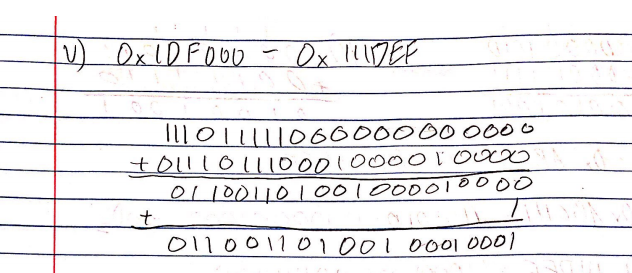 V) 0x1DF000 - 0x111DEF
111011111000000000000
+ 011101110001000010000
011001101001000010000
+ 1
011001101001 00010001